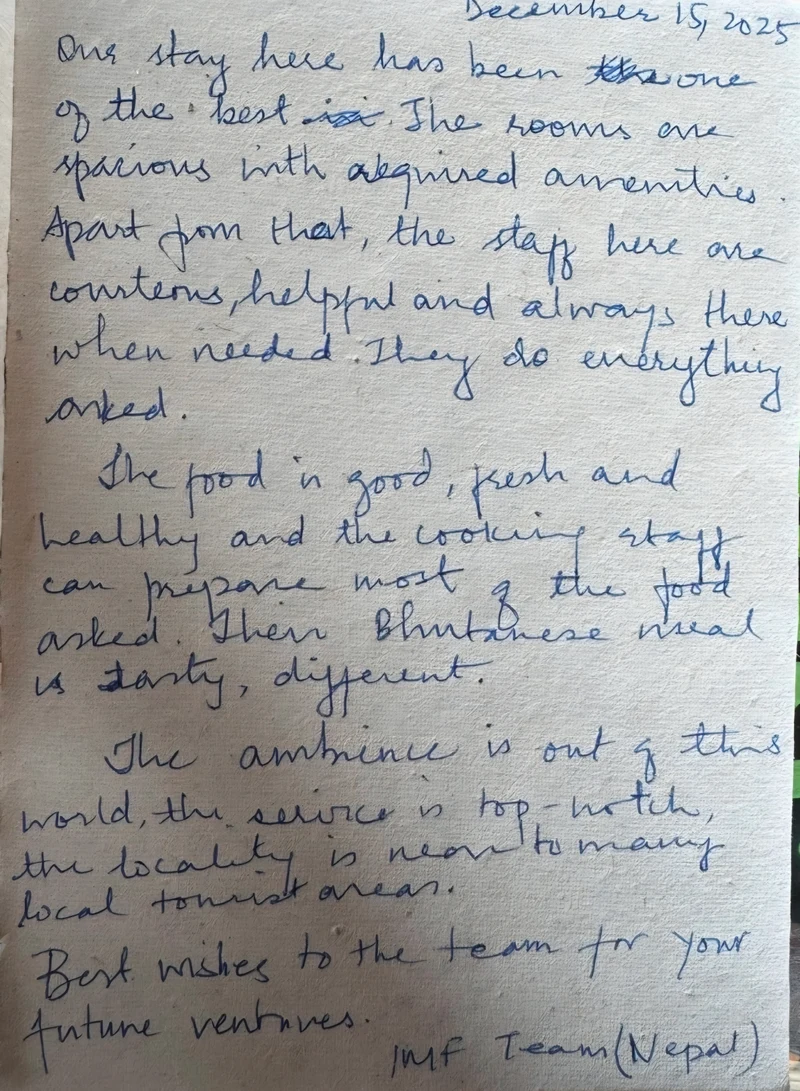 December 15, 2025
Our stay here has been one
of the best. The rooms are
spacious with required amenities.
Apart from that, the staff here are
courteous, helpful and always there
when needed. They do everything
asked.
The food is good, fresh and
healthy and the cooking staff
can prepare most of the food
asked. Their Bhutanese meal
is tasty, different.
The ambience is out of this
world, the service is top-notch,
the locality is near to many
local tourist areas.
Best wishes to the team for your
future ventures.
IMF Team (Nepal)